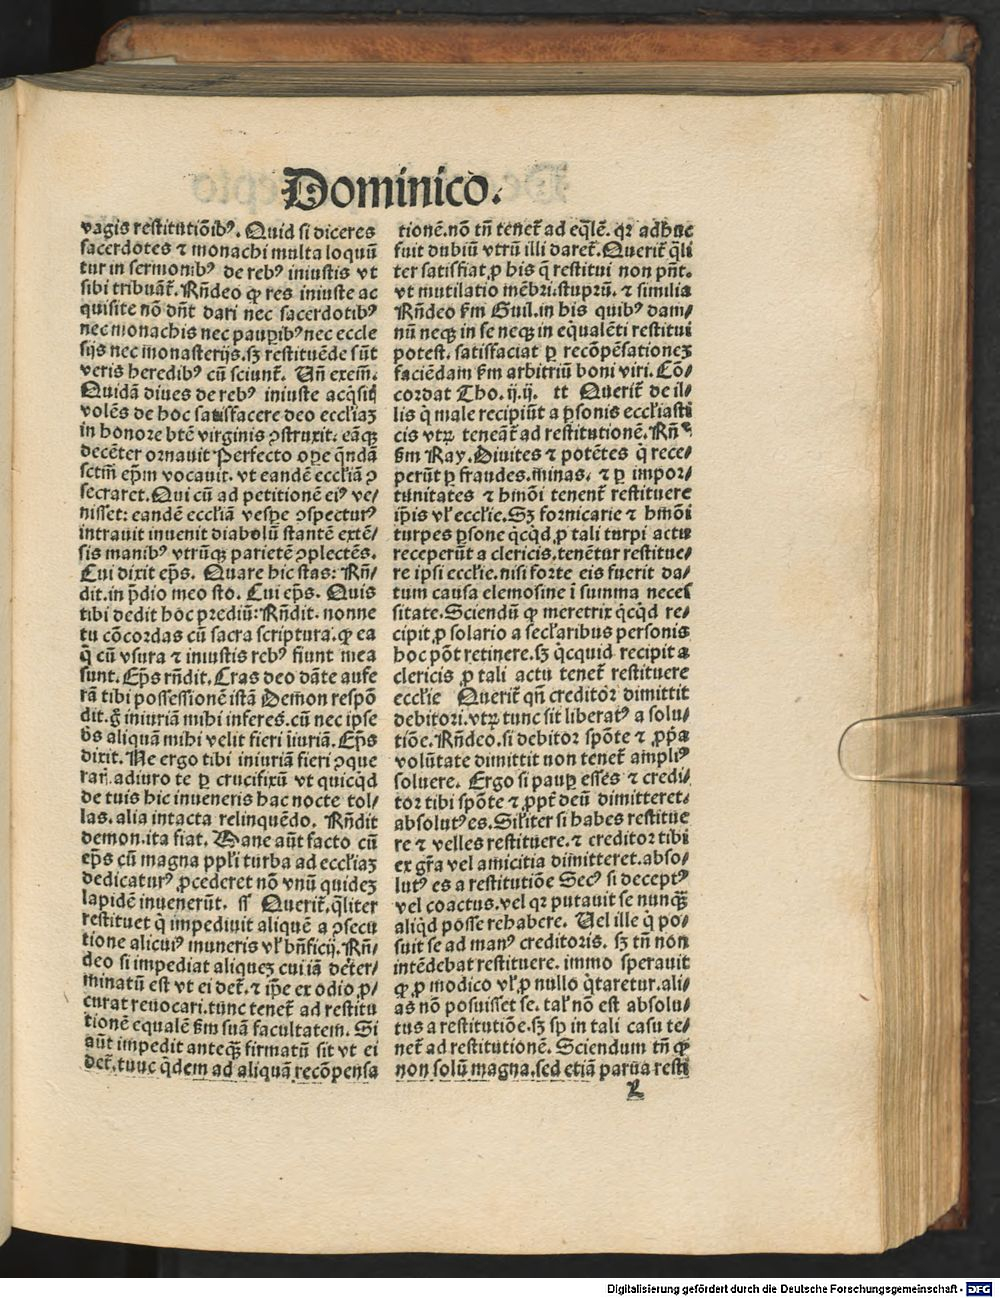 Dominico.
vagis restitutiōibꝰ. Quid si diceres
sacerdotes ⁊ monachi multa loquū
tur in sermonibꝰ de rebꝰ iniustis vt
sibi tribuāt̄. Rn̄deo ꝙ res iniuste ac
quisite nō dn̄t dari nec sacerdotibꝰ
nec monachis nec pauꝑibꝰ nec eccle
sijs nec monasterijs. sꝫ restituēde sūt
veris heredibꝰ cū sciunt̄. Un̄ exem̄.
Quidā diues de rebꝰ iniuste acq̄sit
volēs de hoc satisfacere deo eccl̄iaꝫ
in honore btē virginis ꝯstruxit. eāqꝫ
decēter ornauit Perfecto oꝑe q̄ndā
sctm̄ ep̄m vocauit. vt eandē eccl̄iā ꝯ
secraret. Qui cū ad petitionē eiꝰ ve/
nisset: eandē eccl̄iā vesꝑe ꝯspecturꝰ
intrauit inuenit diabolū stantē extē/
sis manibꝰ vtrūqꝫ parietē ꝯplectēs.
Cui dixit ep̄s. Quare hic stas: Rn̄/
dit. in p̄dio meo sto. Cui ep̄s. Quis
tibi dedit hoc prediū: Rn̄dit. nonne
tu cōcordas cū sacra scriptura. ꝙ ea
q̄ cū vsura ⁊ iniustis rebꝰ fiunt mea
sunt. Ep̄s rn̄dit. Cras deo dāte aufe
rā tibi possessionē istā Demon respō
dit. g̊ iniuriā mihi inferes. cū nec ipse
d̄s aliquā mihi velit fieri iiuriā. Ep̄s
dixit. Ne ergo tibi iniuriā fieri ꝯque
rar̄. adiuro te ꝑ crucifixū vt quicq̄d
de tuis hic inueneris hac nocte tol/
las. alia intacta relinquēdo. Rn̄dit
demon. ita fiat. Mane aūt facto cū
ep̄s cū magna ppl̄i turba ad eccl̄iaꝫ
dedicaturꝰ ꝓcederet nō vnū quideꝫ
lapidē inuenerūt. ſſ Querit̄. q̄liter
restituet q̄ impediuit aliquē a ꝯsecu
tione alicuiꝰ muneris vl̄ bn̄ficij. Rn̄/
deo si impediat aliqueꝫ cui iā deter/
minatū est vt ei det̄. ⁊ ip̄e ex odio ꝓ/
curat reuocari. tunc tenet̄ ad restitu
tionē equalē fm̄ suā facultatem. Si
aūt impedit anteqꝫ̄ firmatū sit vt ei
det̄. tunc q̄dem ad aliquā recōpensa
tionē. nō tn̄ tenet̄ ad eq̄lē. qꝛ adhuc
fuit dubiū vtrū illi daret̄. Querit̄ q̄li
ter satisfiat ꝓ his q̄ restitui non pn̄t.
vt mutilatio mēbri. stuprū. ⁊ similia
Rn̄deo fm̄ Guil. in his quibꝰ dam/
nū neqꝫ in se neqꝫ in equalēti restitui
potest. satisfaciat ꝑ recōpēsationeꝫ
faciēdam fm̄ arbitriū boni viri. Cō/
cordat Tho. ij. ij. tt Querit̄ de il/
lis q̄ male recipiūt a ꝑsonis eccl̄iasti
cis vtꝝ teneāt̄ ad restitutionē. Rn̄
fm̄ Ray. Diuites ⁊ potētes q̄ rece/
perūt ꝑ fraudes. minas. ⁊ ꝑ impor/
tunitates ⁊ hmōi tenent̄ restituere
ip̄is vl̄ eccl̄ie. Sꝫ fornicarie ⁊ hmōi
turpes ꝑsone qcq̄d ꝓ tali turpi actu
receperūt a clericis. tenētur restitue/
re ipsi eccl̄ie. nisi forte eis fuerit da/
tum causa elemosine i summa neces
sitate. Sciendū ꝙ meretrix qcq̄d re/
cipit ꝓ solario a secl̄aribus personis
hoc pōt retinere. sꝫ q̄cquid recipit a
clericis ꝓ tali actu tenet̄ restituere
eccl̄ie Querit̄ qn̄ creditor dimittit
debitori. vtꝝ tunc sit liberatꝰ a solu/
tiōe. Rn̄deo. si debitor spōte ⁊ ꝓpa
volūtate dimittit non tenet̄ ampliꝰ
soluere. Ergo si pauꝑ esses ⁊ credi/
tor tibi spōte ⁊ ꝓpt̄ deū dimitteret.
absolutꝰ es. Sil̄iter si habes restitue
re ⁊ velles restituere. ⁊ creditor tibi
ex gr̄a vel amicitia dimitteret. abso/
lutꝰ es a restitutiōe Secꝰ si deceptꝰ
vel coactus. vel qꝛ putauit se nunqꝫ̄
aliq̄d posse rehabere. Uel ille q̄ po/
suit se ad manꝰ creditoris. sꝫ tn̄ non
intēdebat restituere. immo sperauit
ꝙ ꝓ modico vl̄ ꝓ nullo q̄taretur. ali/
as nō posuisset se. tal̄ nō est absolu/
tus a restitutiōe. sꝫ sp̄ in tali casu te/
net̄ ad restitutionē. Sciendum tn̄ ꝙ
non solū magna. sed etiā parua resti
Digitalisierung gefördert durch die Deutsche Forschungsgemeinschaft - DFG